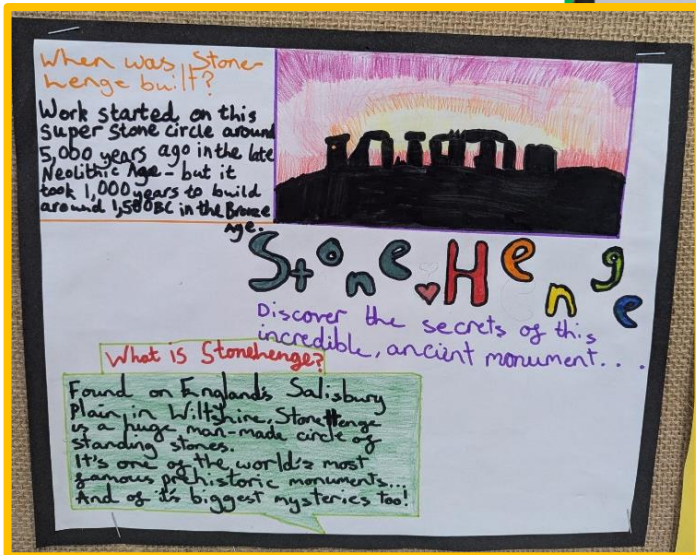 When was Stone-
henge built?
Work started on this
super stone circle around
5,000 years ago in the late
Neolithic Age - but it
took 1,000 years to build
around 1,500BC in the Bronze
Age.
StoneHenge
Discover the secrets of this
incredible, ancient monument...
What is Stonehenge?
Found on England's Salisbury
Plain, in Wiltshire, StoneHenge
is a huge man-made circle of
standing stones.
It's one of the world's most
famous prehistoric monuments...
And of its biggest mysteries too!